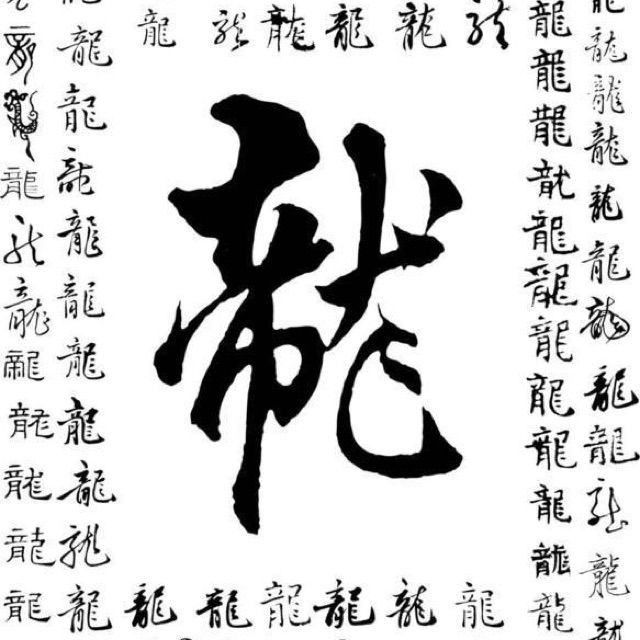 龍龍龍龍龍龍
龍龍龍龍龍龍龍龍龍龍
龍龍龍龍龍龍龍龍龍龍
龍
龍龍龍龍龍龍龍龍龍龍龍龍
龍龍龍龍龍龍龍龍龍龍龍龍
龍龍龍龍龍龍